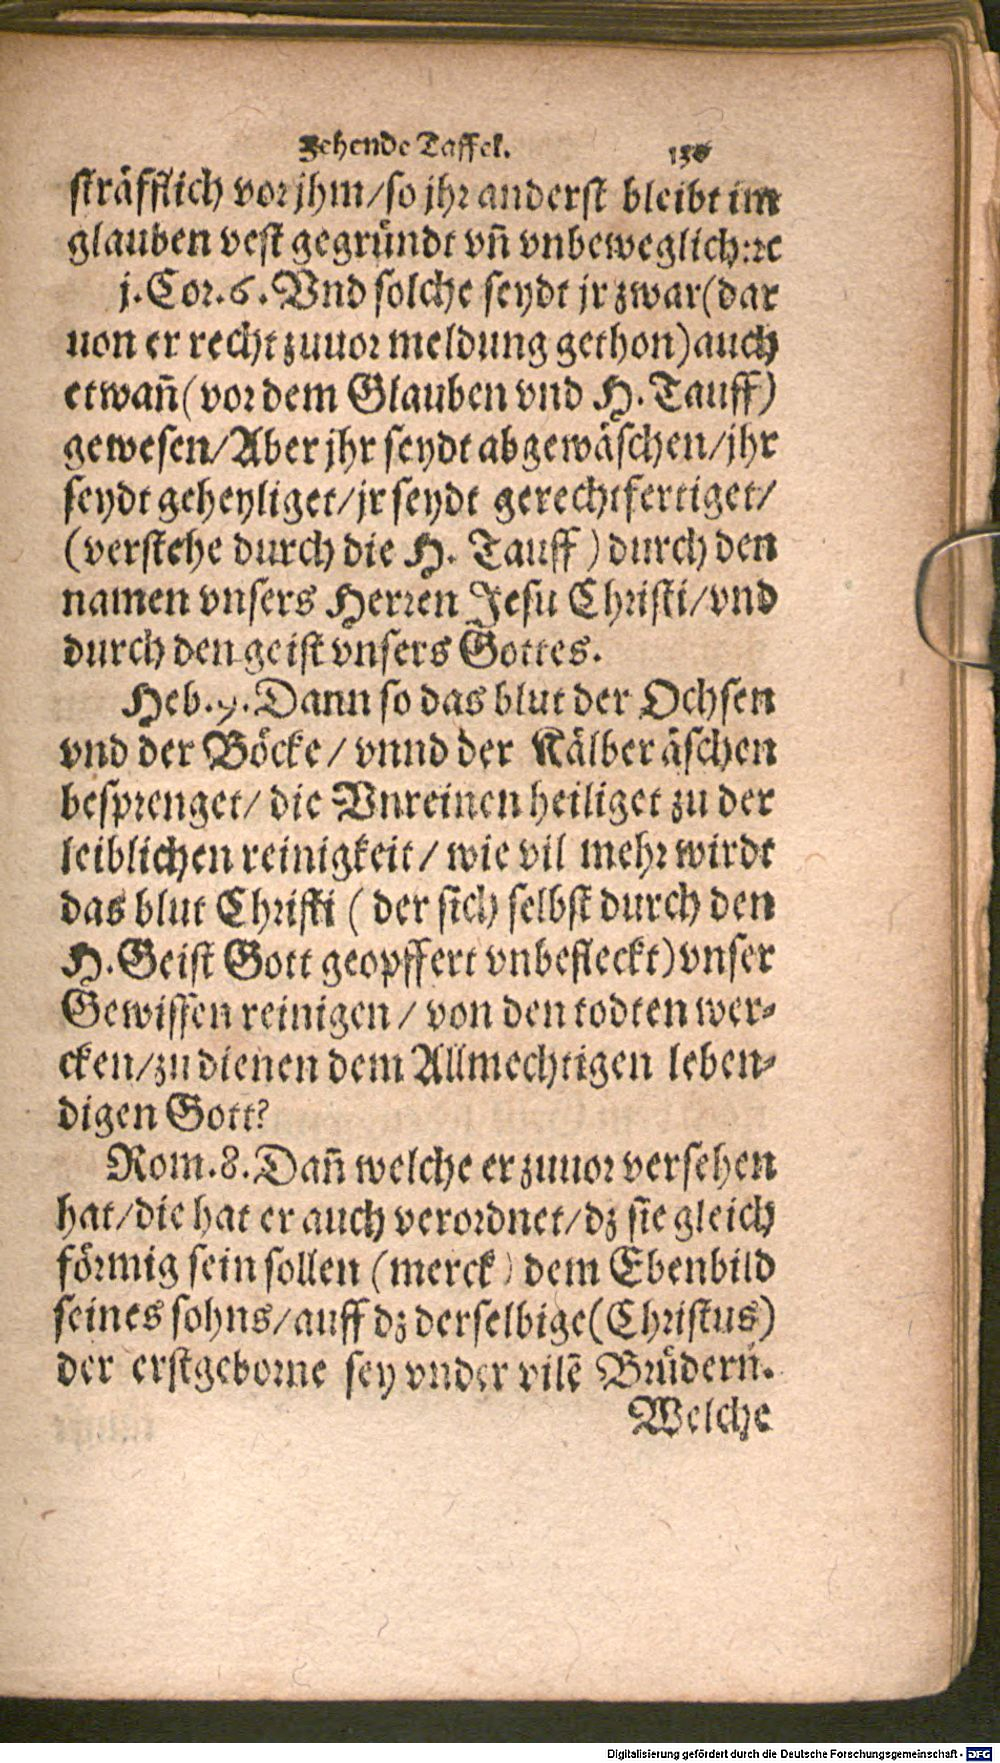 Zehende Taffel. 130
sträfflich vor jhm/so jhr anderst bleibt im
glauben vest gegründt vñ vnbeweglich:ꝛc
j.Cor.6. Vnd solche seydt jr zwar(dar
uon er recht zuuor meldung gethon)auch
etwañ(vor dem Glauben vnd H. Tauff)
gewesen/Aber jhr seydt abgewäschen/jhr
seydt geheyliget/jr seydt gerechtfertiget/
(verstehe durch die H. Tauff) durch den
namen vnsers Herren Jesu Christi/vnd
durch den geist vnsers Gottes.
Heb.9. Dann so das blut der Ochsen
vnd der Böcke/ vnnd der Kälber äschen
besprenget/ die Vnreinen heiliget zu der
leiblichen reinigkeit/ wie vil mehr wirdt
das blut Christi ( der sich selbst durch den
H. Geist Gott geopffert vnbefleckt)vnser
Gewissen reinigen/ von den todten wer-
cken/zu dienen dem Allmechtigen leben-
digen Gott?
Rom.8. Dañ welche er zuuor versehen
hat/die hat er auch verordnet/dz sie gleich
förmig sein sollen (merck) dem Ebenbild
seines sohns/auff dz derselbige(Christus)
der erstgeborne sey vnder vilẽ Brüdern.
Welche
Digitalisierung gefördert durch die Deutsche Forschungsgemeinschaft - DFG